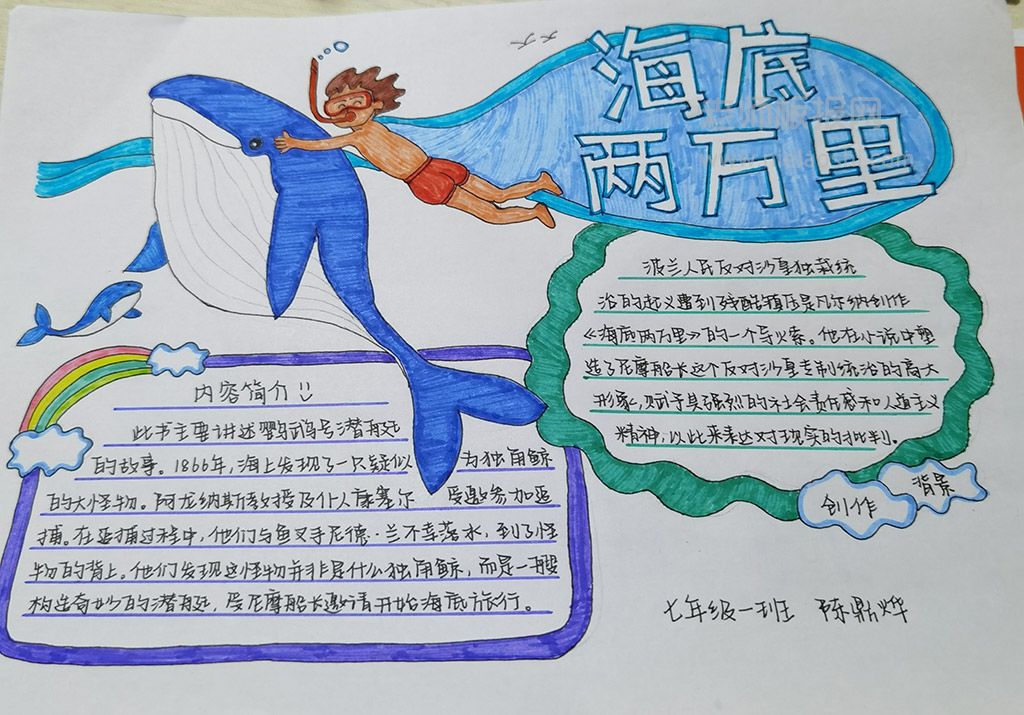 海底
两万里
波兰人民反对沙皇独裁统
治的起义遭到残酷镇压是凡尔纳创作
《海底两万里》的一个导火索。他在小说中塑
造了尼摩船长这个反对沙皇专制统治的高大
形象,赋予其强烈的社会责任感和人道主义
精神,以此来表达对现实的批判。
创作
背景
内容简介
此书主要讲述鹦鹉号潜艇
的故事。1866年,海上发现了一只疑似 为独角鲸
的大怪物。阿龙纳斯教授及仆人康塞尔 受邀参加追
捕。在追捕过程中,他们与鱼叉手尼德·兰不幸落水,到了怪
物的背上。他们发现这怪物并非是什么独角鲸,而是一艘
构造奇妙的潜艇,受尼摩船长邀请开始海底旅行。
七年级一班 陈鼎烨